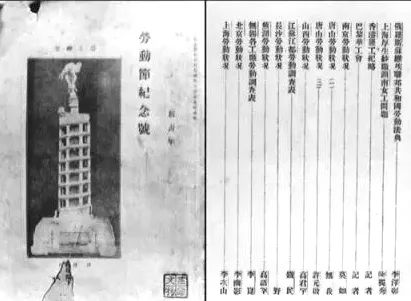 俄羅斯蘇維埃聯邦共和國勞動法典 李澤彰
上海厚生紗廠湖南女工問題 陳獨秀
香港罷工紀略 記者
巴黎華工會 記者
南京勞動狀況 莫如
唐山勞動狀況(一) 無我
唐山勞動狀況(二) 許元啟
山西勞動狀況 高君宇
江蘇江都勞動調查表 鐵民
長沙勞動狀況 野
蕪湖勞動狀況 高語罕
無錫各工廠勞動調查表 李崑
北京勞動狀況 李幽影
上海勞動狀況 李次山
新青年
勞動節紀念號